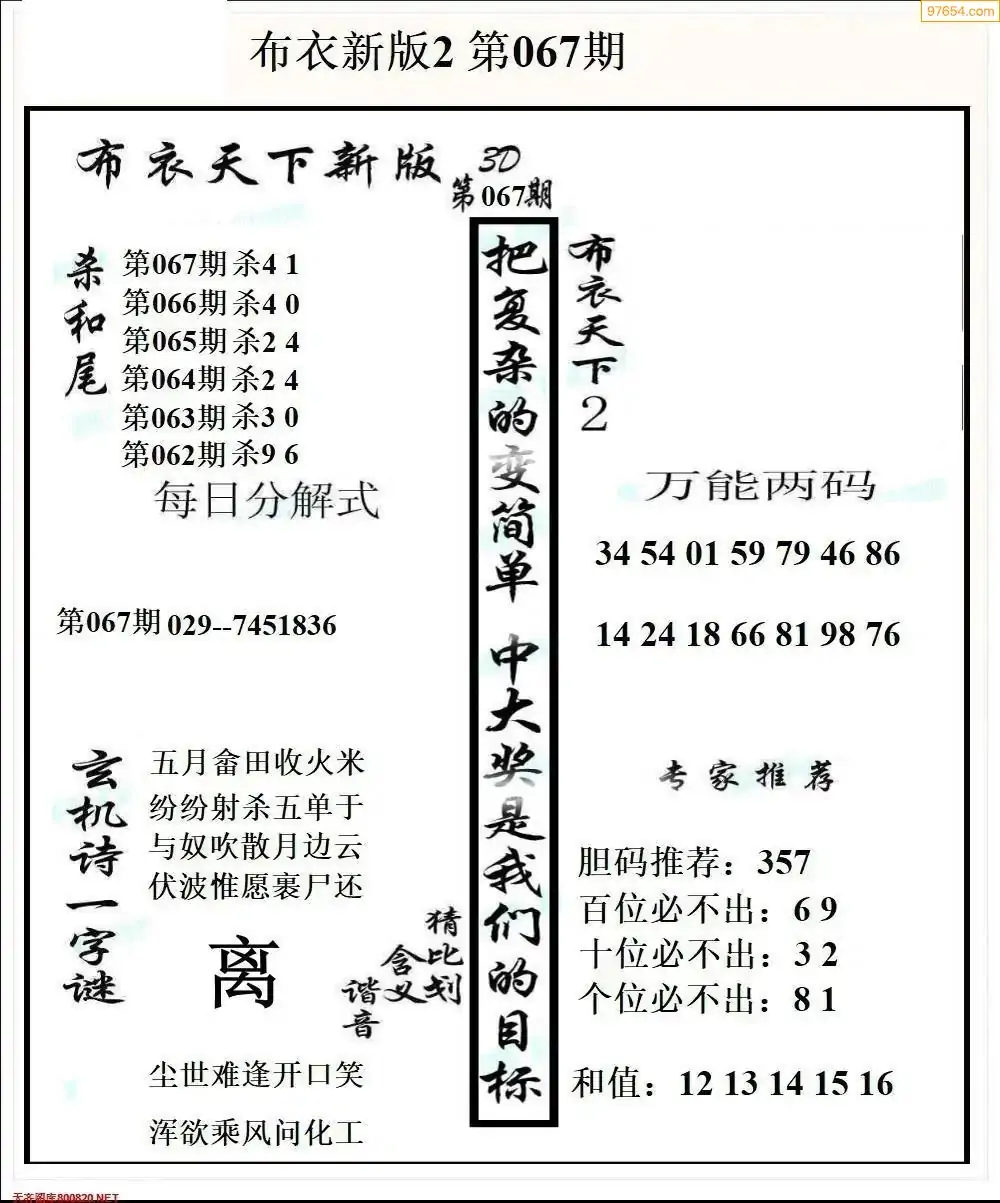 97654.com
布衣新版2 第067期
布衣天下新版
3D
第067期
杀和尾
第067期 杀4 1
第066期 杀4 0
第065期 杀2 4
第064期 杀2 4
第063期 杀3 0
第062期 杀9 6
每日分解式
第067期 029--7451836
玄机诗一字谜
五月畲田收火米
纷纷射杀五单于
与奴吹散月边云
伏波惟愿裹尸还
离
猜比划
含义
谐音
尘世难逢开口笑
浑欲乘风问化工
把复杂的变简单 中大奖是我们的目标
布衣天下2
万能两码
34 54 01 59 79 46 86
14 24 18 66 81 98 76
专家推荐
胆码推荐：357
百位必不出：6 9
十位必不出：3 2
个位必不出：8 1
和值：12 13 14 15 16
天齐图库800820.NET